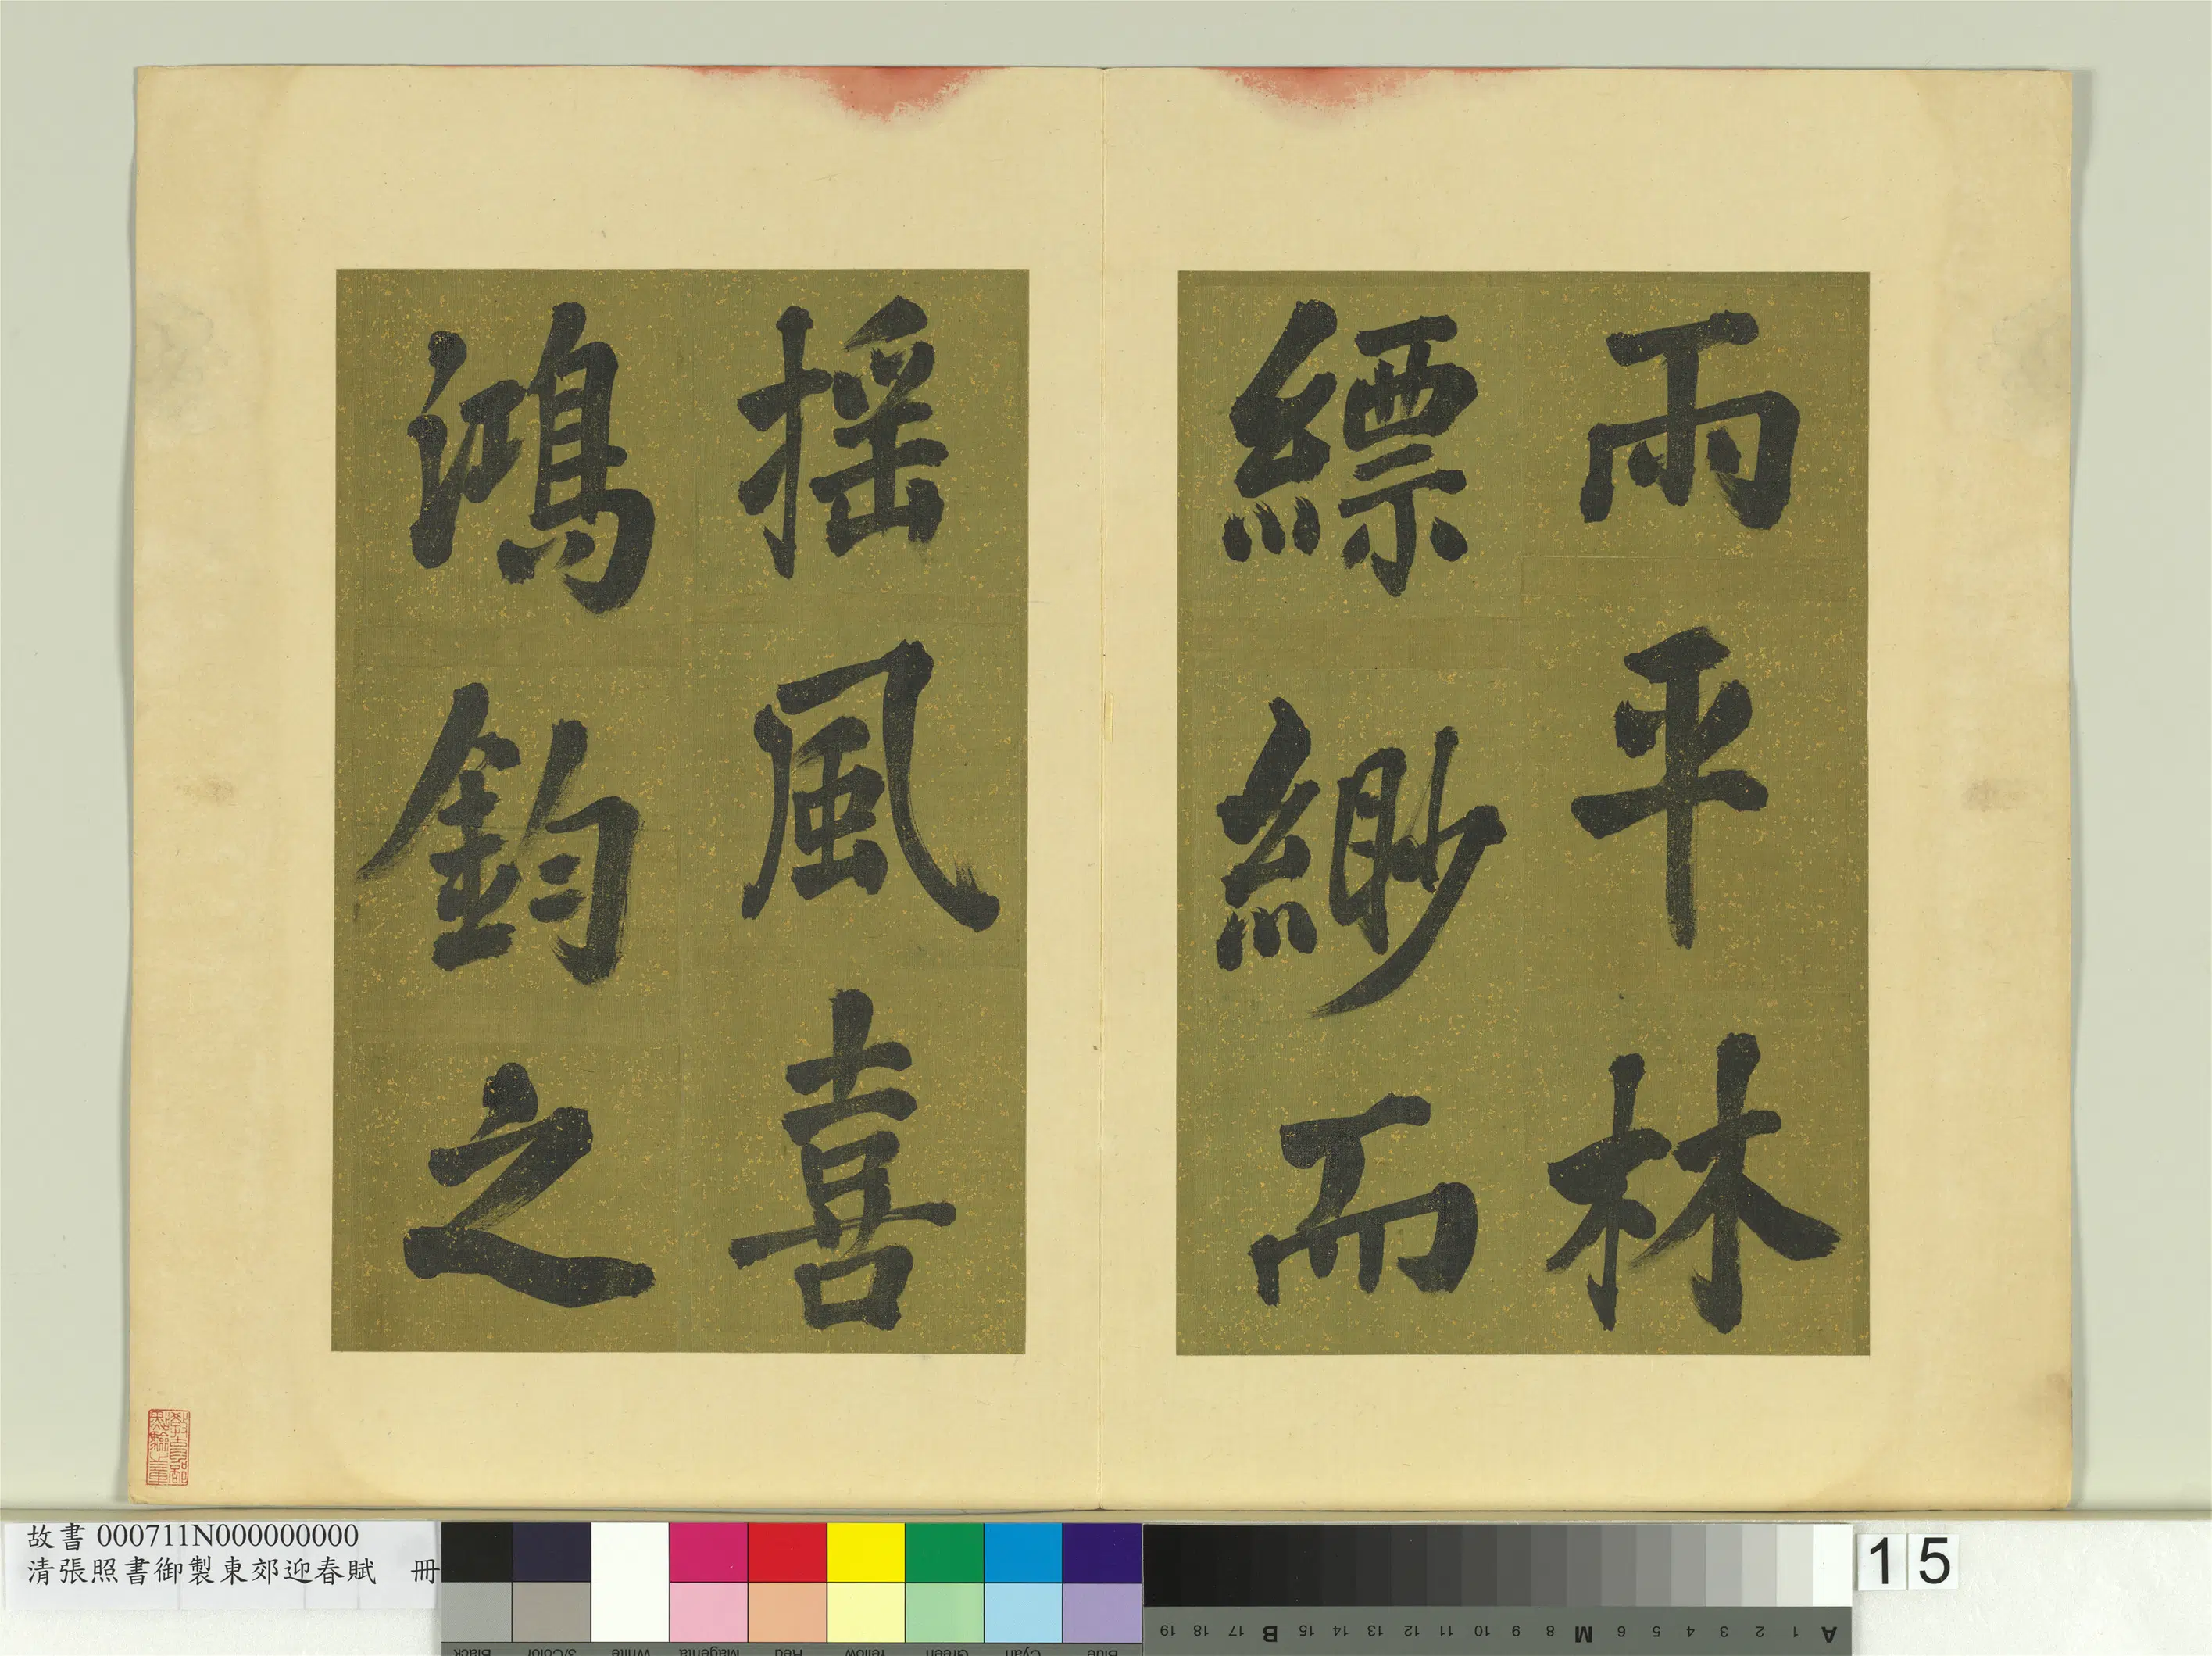 雨平林
縹緲而
揺風喜
鴻鈞之
教育部
點驗之章
故書 000711N000000000
清張照書御製東郊迎春賦 冊
15
Black 3/Color White Magenta Red Yellow Green Cyan Blue
A 1 2 3 4 5 6 M 8 9 10 11 12 13 14 15 B 17 18 19